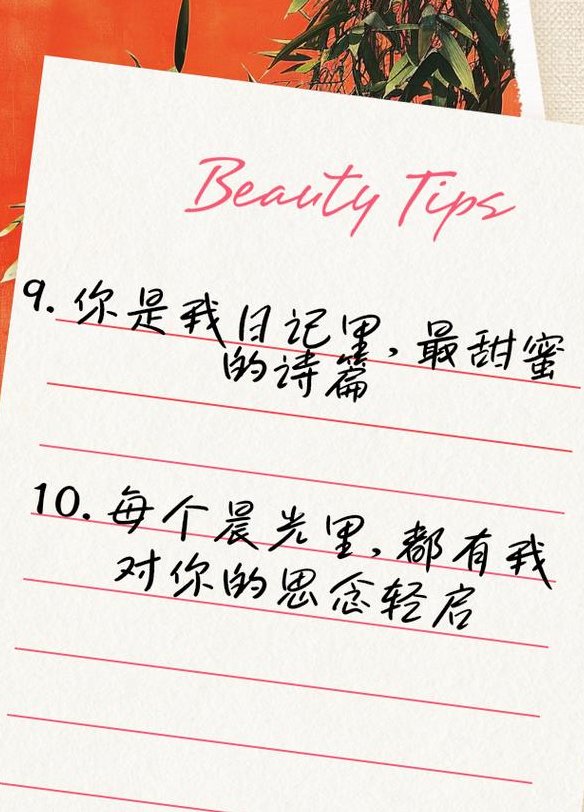 Beauty Tips
9. 你是我日记里，最甜蜜
的诗篇
10. 每个晨光里，都有我
对你的思念轻启